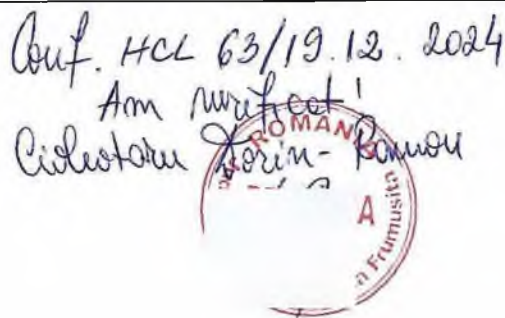 Conf. HCL 63/19.12.2024
Am verificat!
Ciobotaru Dorin-Ramon
ROMÂN
A
a Frumusita